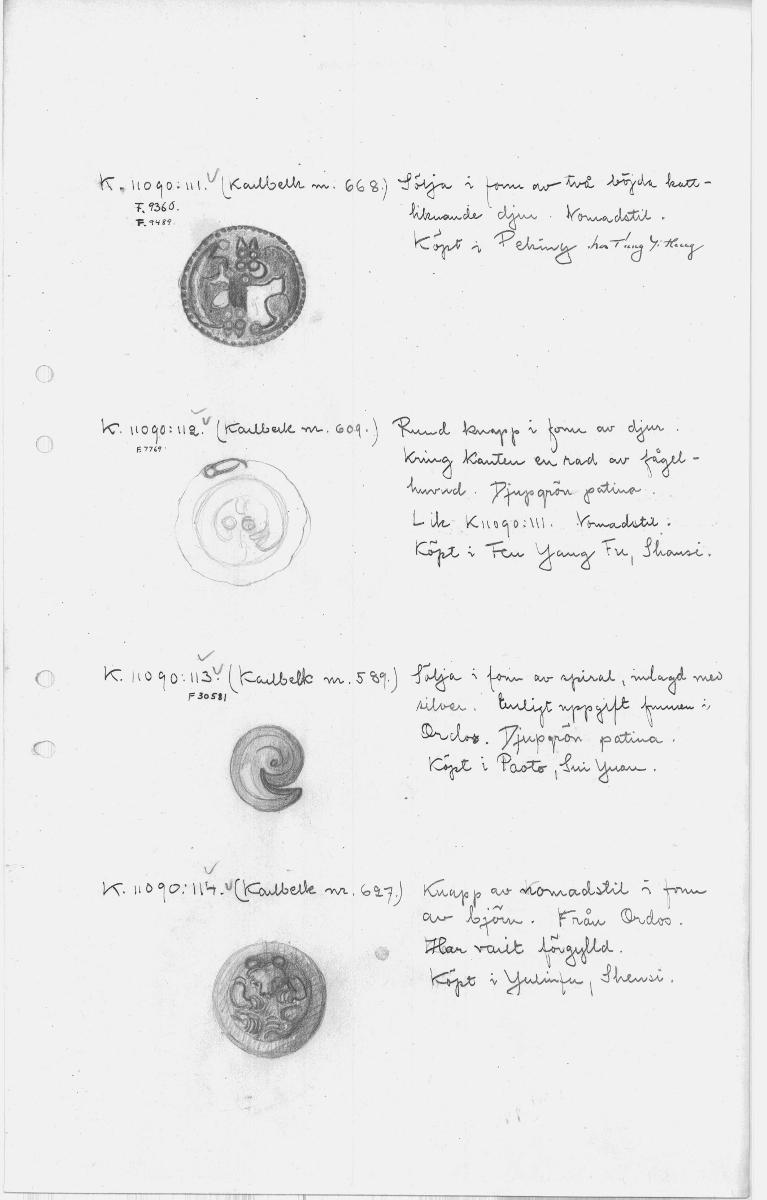 K. 11090:111. (Karlbeck nr. 668.) Sölja i form av två böjda katt-
F. 9360.
F. 9489.
liknande djur. Nomadstil.
Köpt i Peking hos
K. 11090:112. (Karlbeck nr. 609.) Rund knapp i form av djur.
F 7769
Kring kanten en rad av fågel-
huvud. Djupgrön patina.
Lik K 11090:111. Nomadstil.
Köpt i Fen Yang Fu, Shansi.
K. 11090:113. (Karlbeck nr. 589.) Sölja i form av spiral, inlagd med
F 30581
silver. Enligt uppgift funnen i
Ordos. Djupgrön patina.
Köpt i Paoto, Sui Yuan.
K. 11090:114. (Karlbeck nr. 627.) Knapp av nomadstil i form
av björn. Från Ordos.
Har varit förgylld.
Köpt i Yulinfu, Shensi.